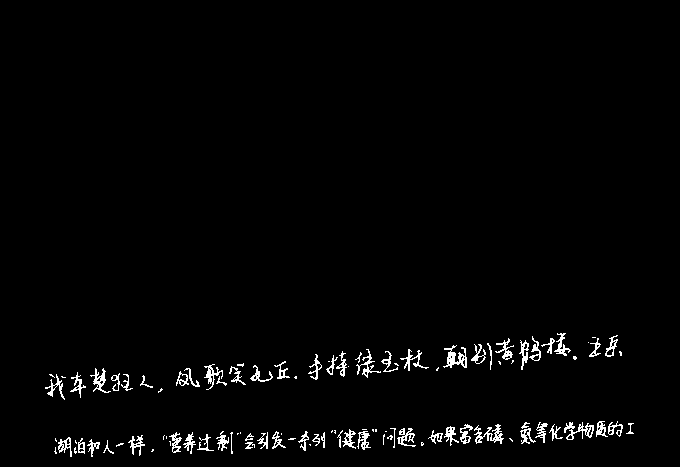 我本楚狂人，凤歌笑孔丘.手持绿玉杖，朝别黄鹤楼。五岳
湖泊和人一样，“营养过剩”会引发一系列“健康”问题。如果富含磷、氮等化学物质的工